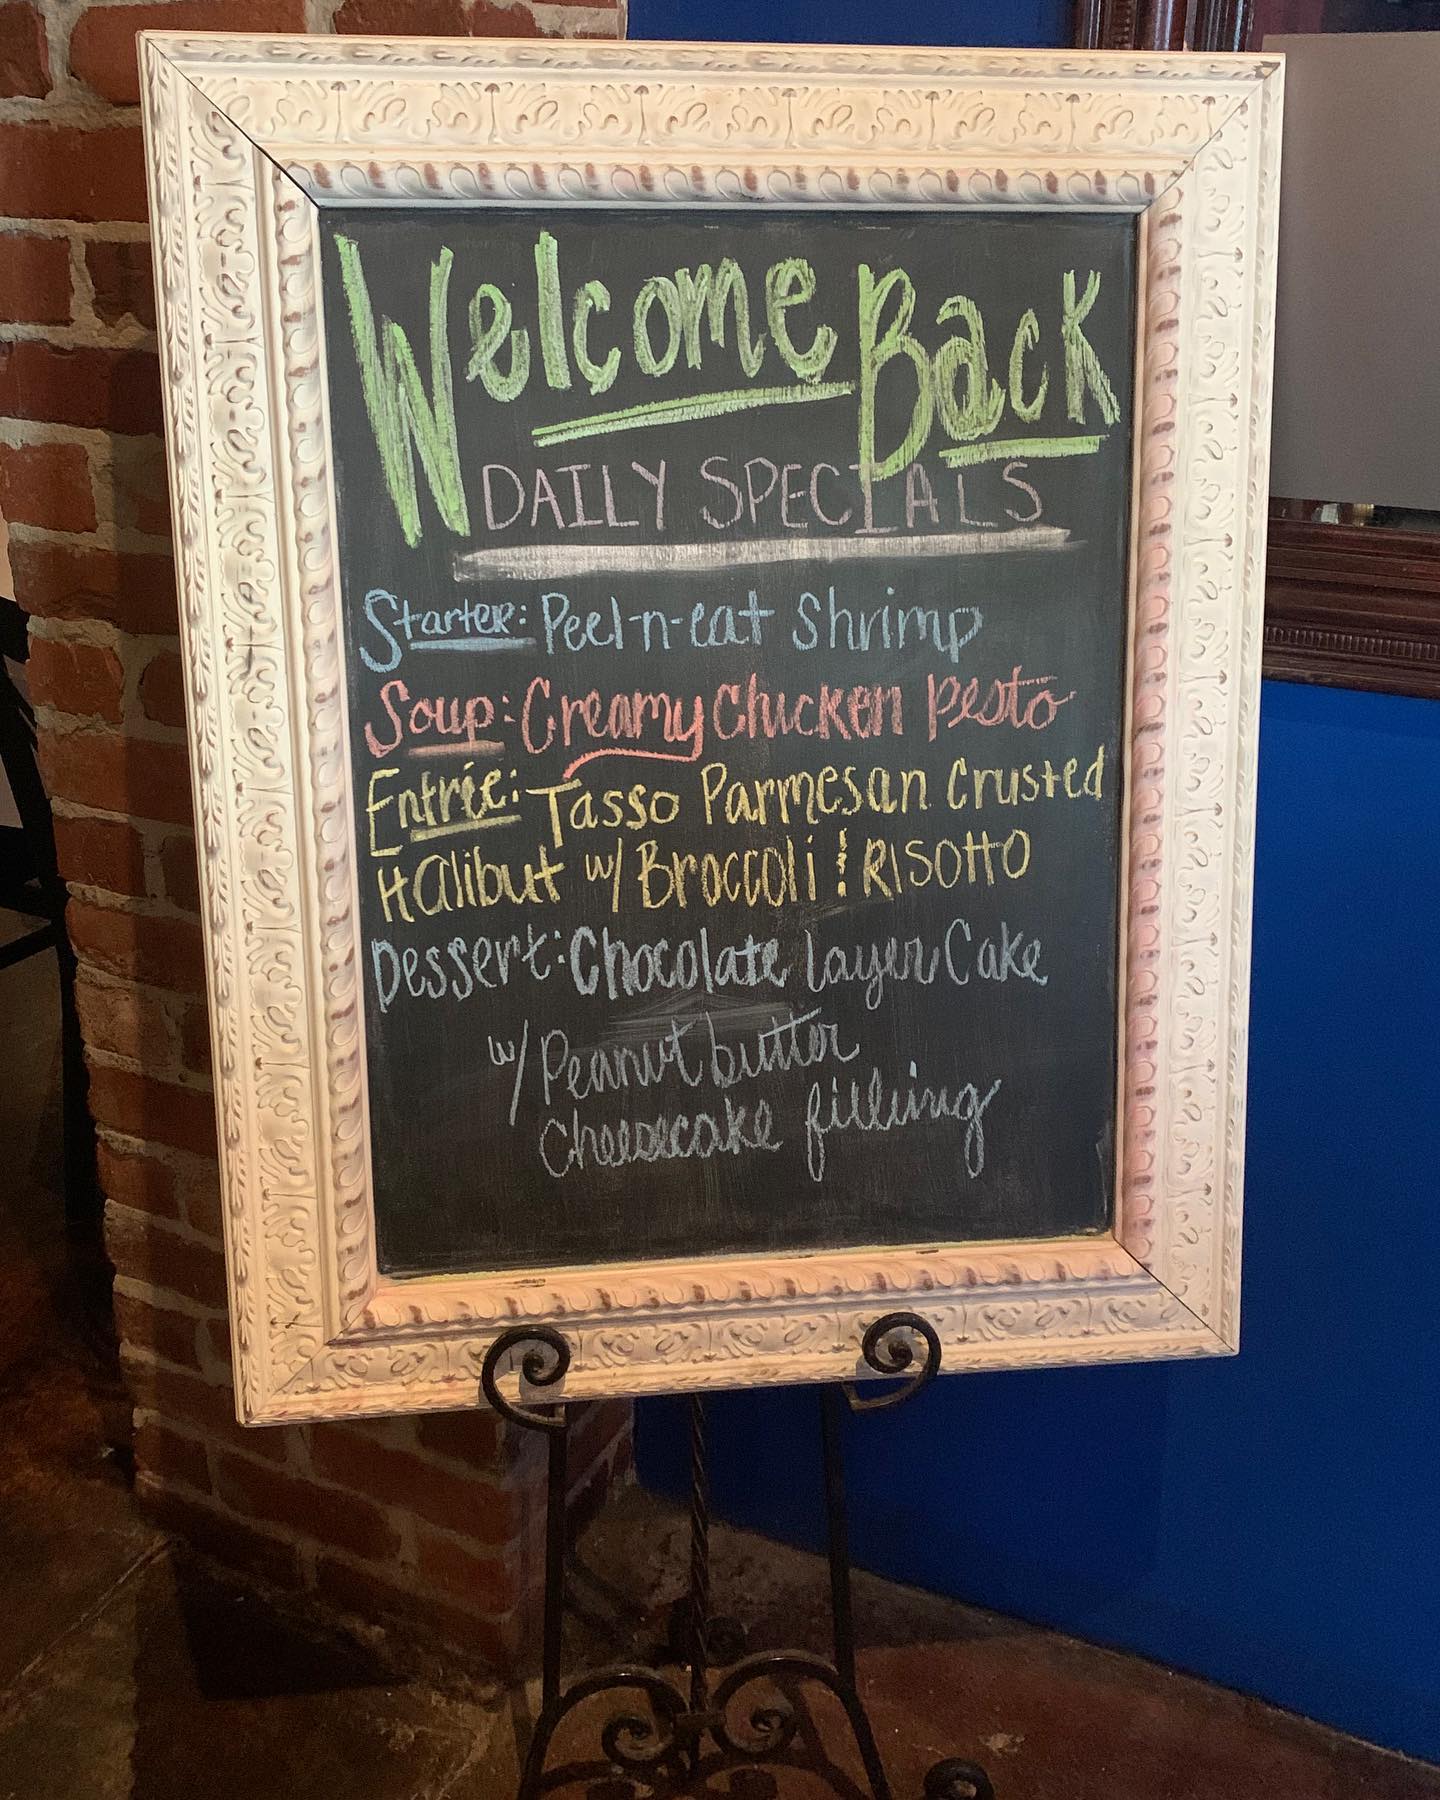 Welcome Back
DAILY SPECIALS
Starter: Peel-n-eat Shrimp
Soup: Creamy Chicken Pesto
Entrée: Tasso Parmesan Crusted
Halibut w/ Broccoli ! RISOTTO
Dessert: Chocolate Layer Cake
w/ Peanut butter
cheesecake filling